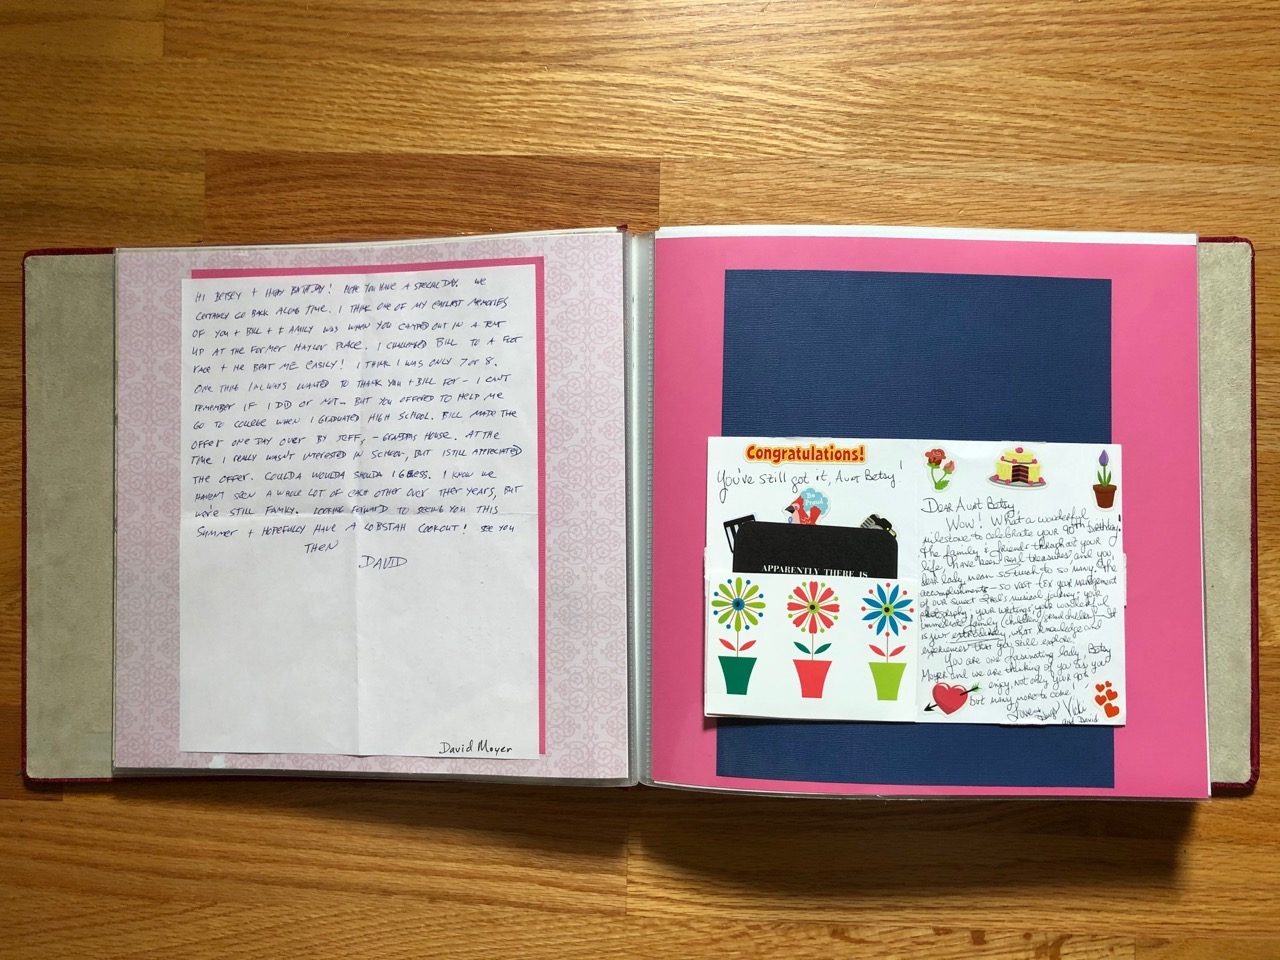 HI BETSEY + HAPPY BIRTHDAY! HOPE YOU HAVE A SPECIAL DAY. WE
CERTAINLY GO BACK ALONG TIME. I THINK ONE OF MY EARLIEST MEMORIES
OF YOU + BILL + FAMILY WAS WHEN YOU CAMPED OUT IN A TENT
UP AT THE FORMER NAYLOR PLACE. I CHALLENGED BILL TO A FOOT
RACE + HE BEAT ME EASILY! I THINK I WAS ONLY 7 OR 8.
ONE THING I ALWAYS WANTED TO THANK YOU + BILL FOR - I CAN'T
REMEMBER IF I DID OR NOT - BUT YOU OFFERED TO HELP ME
GO TO COLLEGE WHEN I GRADUATED HIGH SCHOOL. BILL MADE THE
OFFER ONE DAY OVER BY JEFF, - GRANDPAS HOUSE. AT THE
TIME I REALLY WASN'T INTERESTED IN SCHOOL, BUT I STILL APPRECIATED
THE OFFER. COULDA WOULDA SHOULDA I GUESS. I KNOW WE
HAVEN'T SEEN A WHOLE LOT OF EACH OTHER OVER THER YEARS, BUT
WE'RE STILL FAMILY. LOOKING FORWARD TO SEEING YOU THIS
SUMMER + HOPEFULLY HAVE A LOBSTAH COOKOUT! SEE YOU
THEN
DAVID
David Moyer
Congratulations!
You've still got it, Aunt Betsy!
Be Proud
APPARENTLY THERE IS
Dear Aunt Betsy,
Wow! What a wonderful
milestone to celebrate your 90th birthday!
The family & friends throughout your
life have been real treasures, and you
dear lady, mean so much to so many. The
accomplishments - so vast - ex your management
of our sweet musical journey, your
photography, your writings, your wonderful
immediate family (children, grandchildren). It
is just extraordinary, what knowledge and
experiences that you still explore.
You are one fascinating lady, Betsy
Moyer and we are thinking of you as you
enjoy, not only your 90th,
but many more to come!
Love & Vicki
and David